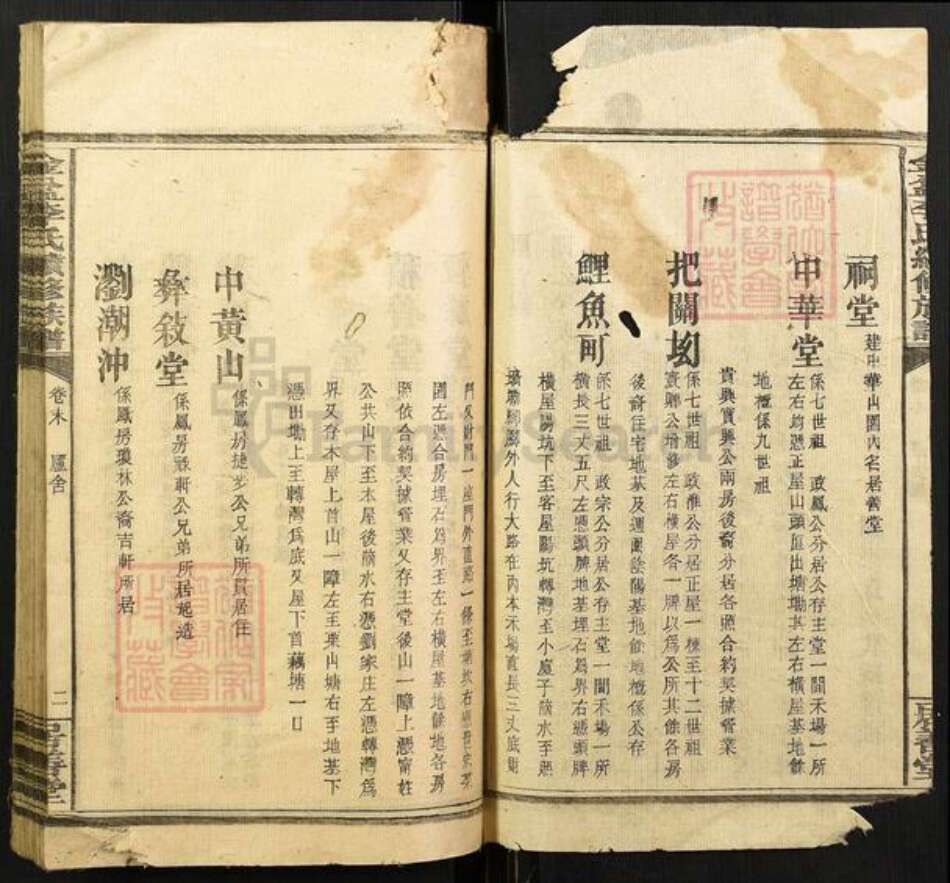 祠堂 建中華山園內名居舊堂
中華堂 係七世祖 政鳳公分居公存主堂一間禾場一所
左右均憑正屋山頭匯出塘墈基左右橫屋基地餘
地檀係九世祖
貴興寶興公兩房後裔分居各照合約契據管業
把關坳 係七世祖 政淮公分居正屋一棟至十二世祖
寰聯公增修左右橫屋各一牌以爲公所其餘各房
後裔住宅地基及週圍陰陽基地餘地檀係公存
鯉魚町 係七世祖 政宗公分居公存主堂一間禾場一所
橫長三丈五尺左憑頭牌地基埋石爲界右憑頭牌
橫屋陽坑下至客屋陽坑轉灣至小廈子滴水至照
外人行大路在內本禾場直長三丈底
門一座門外直路一條至
園左憑合房埋石爲界至左右橫屋基地餘地各房
照依合約契據管業又存主堂後山一障上憑甯姓
公共山下至木屋後滴水右憑劉家庄左憑轉灣爲
界又存木屋上首山一障左至栗山塘右至地基下
憑田墈上至轉灣爲底又屋下首藕塘一口
中黃山 係鳳房捷步公兄弟所貫居住
彝敘堂 係鳳房公兄弟所居起造
瀏潮沖 係鳳房瓊林公裔吉軒所居
李氏續修族譜
卷末 廬舍
二
FamilySearch